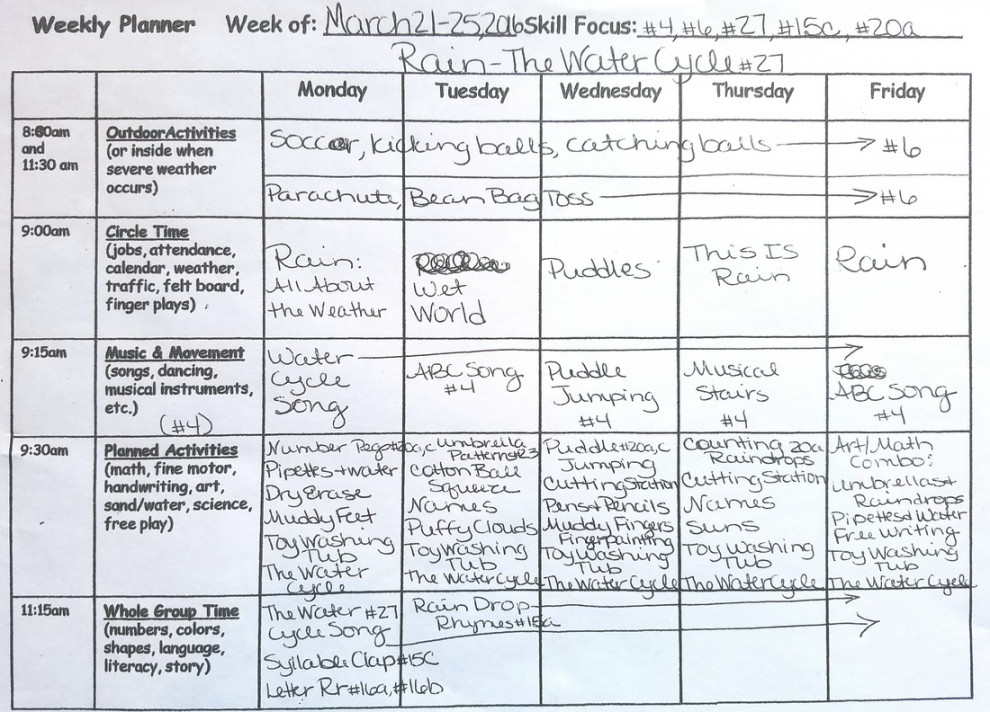 Weekly Planner Week of: March 21-25, 2016 Skill Focus: #4, #6, #27, #15c, #20a
Rain - The Water Cycle #27
Monday Tuesday Wednesday Thursday Friday
8:60am
and
11:30 am
Outdoor Activities
(or inside when
severe weather
occurs)
Soccer, kicking balls, catching balls → #6
Parachute, Bean Bag Toss → #6
9:00am
Circle Time
(jobs, attendance,
calendar, weather,
traffic, felt board,
finger plays)
Rain:
All About
the Weather
Wet
World
Puddles
This Is
Rain
Rain
9:15am
Music & Movement
(songs, dancing,
musical instruments,
etc.)
(#4)
Water →
Cycle
Song
ABC Song
#4
Puddle
Jumping
#4
Musical
Stairs
#4
ABC Song
#4
9:30am
Planned Activities
(math, fine motor,
handwriting, art,
sand/water, science,
free play)
Number Pegs #20a,c
Pipettes + water
Dry Erase
Muddy Feet
Toy Washing
Tub
The Water
Cycle
Umbrella
Patterns #23
Cotton Ball
Squeeze
Names
Puffy Clouds
Toy Washing
Tub
The Water Cycle
Puddle #20a,c
Jumping
Cutting Station
Pens + Pencils
Muddy Fingers
Fingerpainting
Toy Washing
Tub
The Water Cycle
Counting 20a
Raindrops
Cutting Station
Names
Suns
Toy Washing
Tub
The Water Cycle
Art/Math
Combo:
Umbrellas +
Raindrops
Pipettes + Water
Free Writing
Toy Washing
Tub
The Water Cycle
11:15am
Whole Group Time
(numbers, colors,
shapes, language,
literacy, story)
The Water #27
Cycle Song →
Syllable Clap #15C
Letter Rr #16a, #16b
Rain Drop →
Rhymes #15a